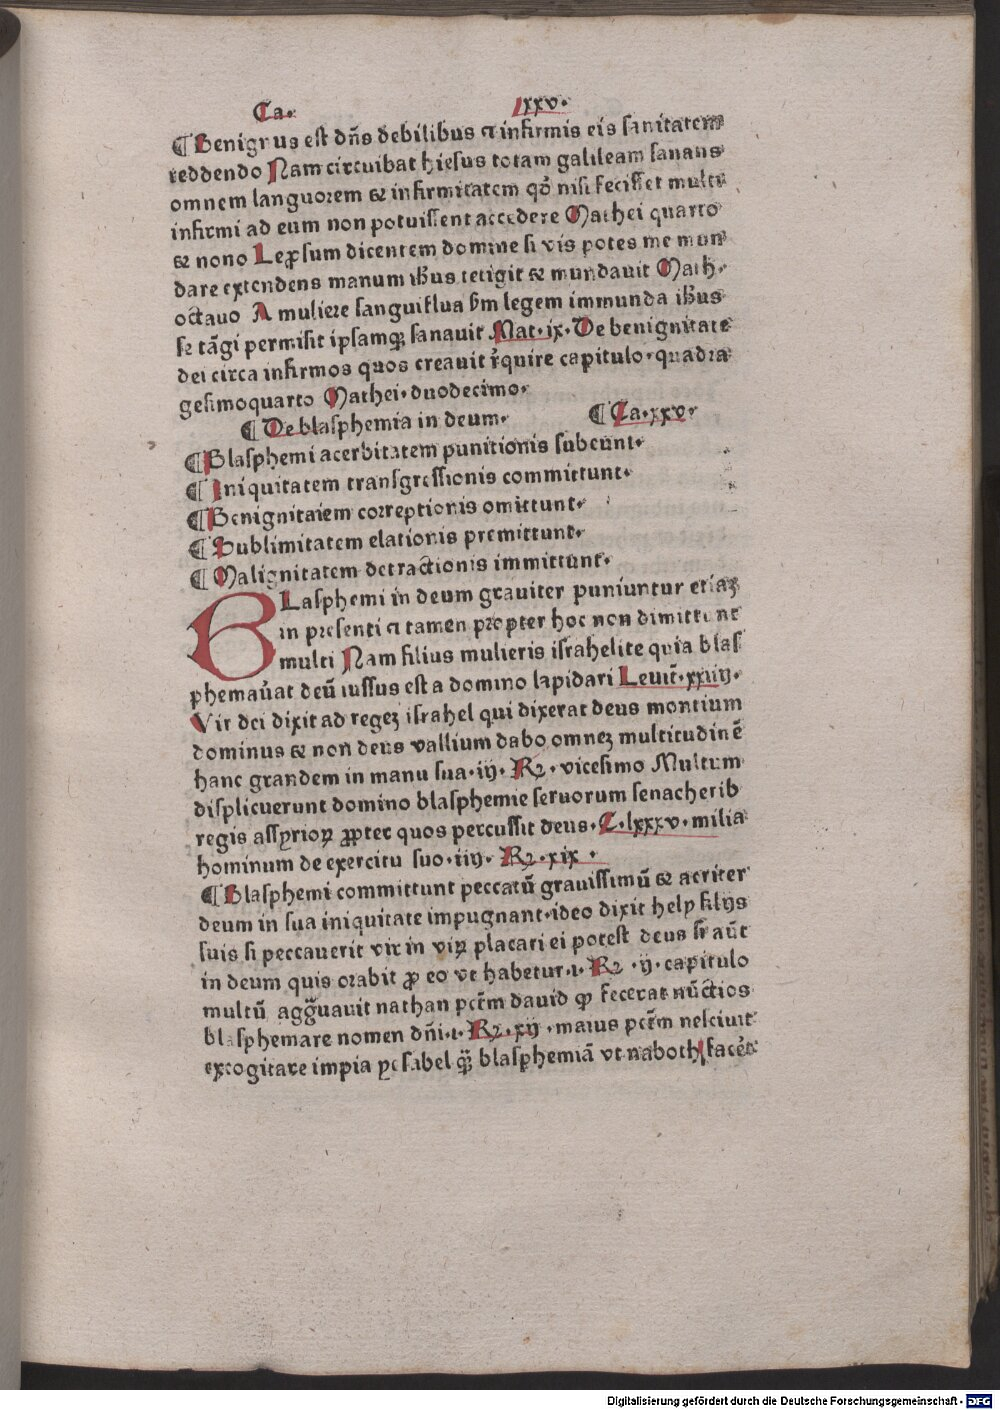 Ca. xxv.
¶ Benignus est dñs debilibus ⁊ infirmis eis sanitatem
reddendo Nam circuibat hiesus totam galileam sanans
omnem languorem & infirmitatem qd̕ nisi fecisset multi
infirmi ad eum non potuissent accedere Mathei quarto
& nono Leꝓsum dicentem domine si vis potes me mun
dare extendens manum ihus tetigit & mundauit Math.
octauo A muliere sanguiflua sm legem immunda ihus
se tāgi permisit ipsamqꝫ sanauit Mat. ix. De benignitate
dei circa infirmos quos creauit r̕quire capitulo. quadra
gesimoquarto Mathei. duodecimo.
¶ De blasphemia in deum. ¶ Ca. xxv.
¶ Blasphemi acerbitatem punitionis subeunt.
¶ Iniquitatem transgressionis committunt.
¶ Benignitatem correptionis omittunt.
¶ Sublimitatem elationis premittunt.
¶ Malignitatem detractionis immittunt.
BLasphemi in deum grauiter puniuntur etiaꝫ
in presenti ⁊ tamen propter hoc non dimittunt
multi Nam filius mulieris israhelite quia blas
phemau̕at deū iussus est a domino lapidari Leuit̄. xxiiij.
Vir dei dixit ad regeꝫ israhel qui dixerat deus montium
dominus & non deus vallium dabo omneꝫ multitudinē
hanc grandem in manu sua. iij. Rꝫ. vicesimo Multum
displicuerunt domino blasphemie seruorum senacherib
regis assyrioꝝ ꝓpter quos percussit deus. C. lxxxv. milia
hominum de exercitu suo. iiij. Rꝫ. xix.
¶ Blasphemi committunt peccatū grauissimū & acriter
deum in sua iniquitate impugnant. ideo dixit hely filijs
suis si peccauerit vir in viꝝ placari ei potest deus si aūt
in deum quis orabit ꝓ eo vt habetur. i. Rꝫ. ij. capitulo
multū aggͣuauit nathan pctm̄ dauid ꝙ fecerat nūctios
blasphemare nomen dñi. i. Rꝫ. xij. maius pctm̄ nesciuit
excogitare impia yesabel qͣꝫ blasphemiā vt naboth facēt
Digitalisierung gefördert durch die Deutsche Forschungsgemeinschaft - DFG